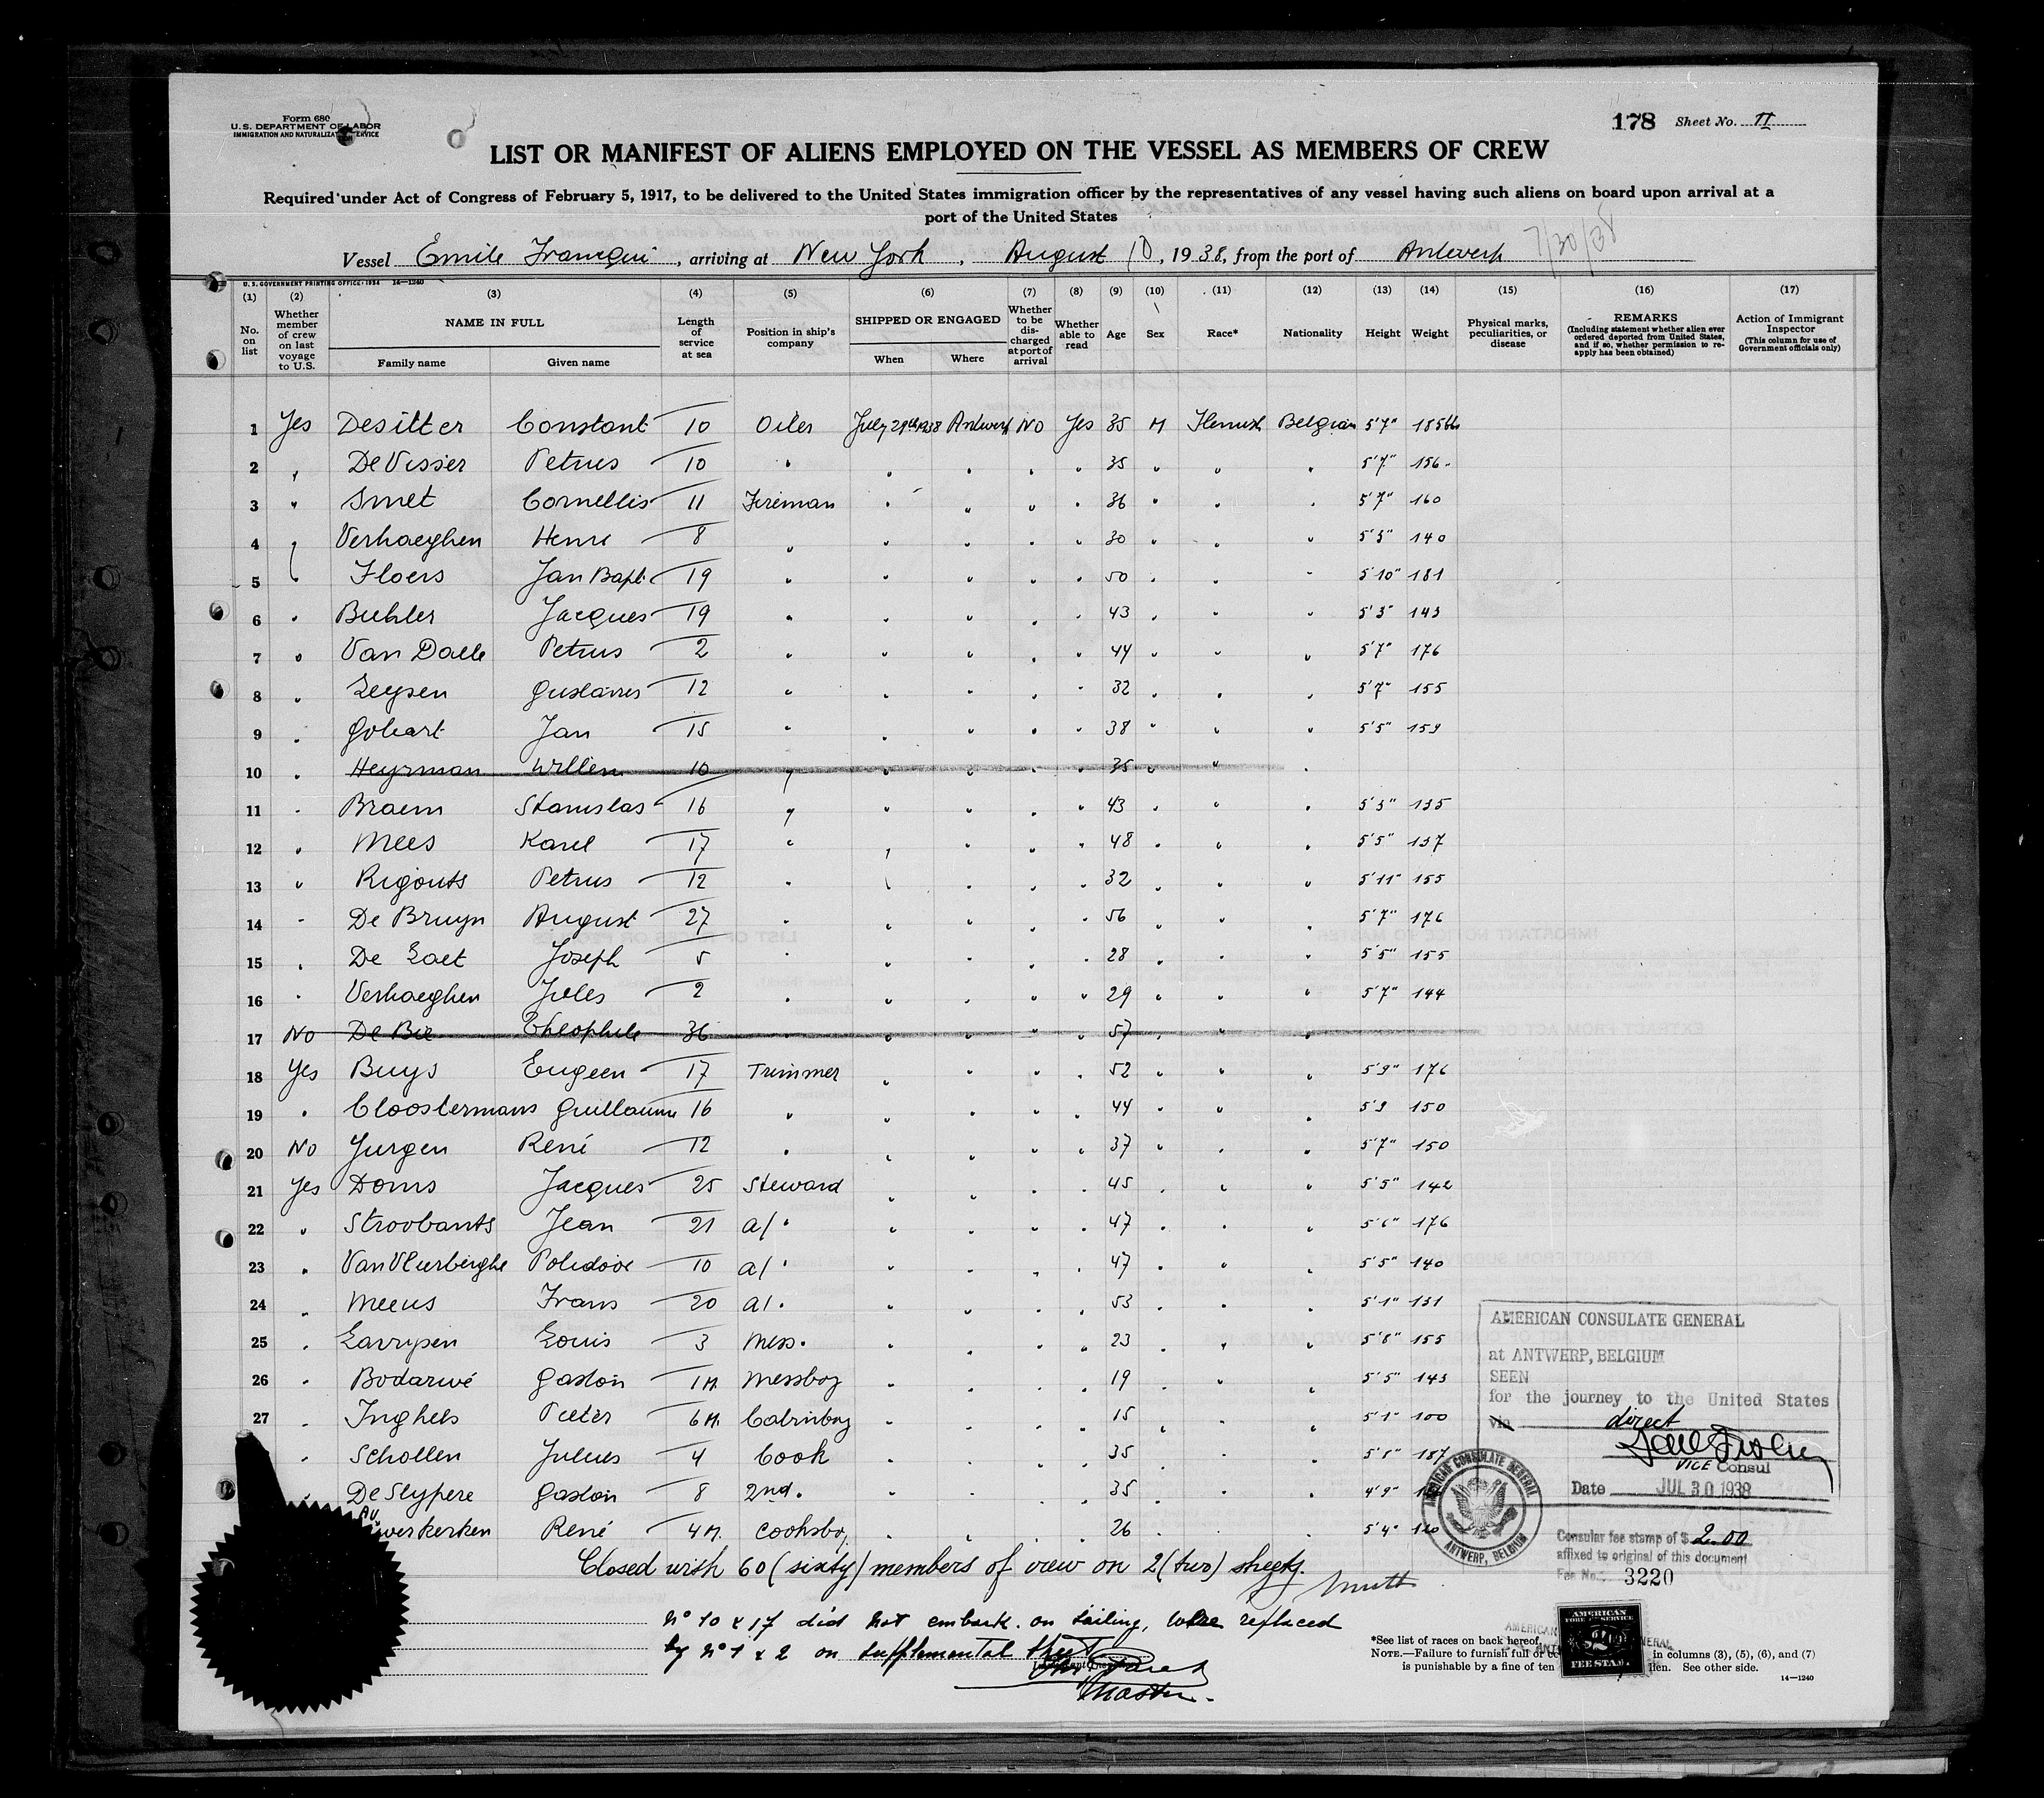 Form 680
U. S. DEPARTMENT OF LABOR
IMMIGRATION AND NATURALIZATION SERVICE
178 Sheet No. II
LIST OR MANIFEST OF ALIENS EMPLOYED ON THE VESSEL AS MEMBERS OF CREW
Required under Act of Congress of February 5, 1917, to be delivered to the United States immigration officer by the representatives of any vessel having such aliens on board upon arrival at a
port of the United States
Vessel Emile Francqui, arriving at New York, August 10, 1938, from the port of Antwerp 7/30/38
U. S. GOVERNMENT PRINTING OFFICE: 1934 14—1240
(1) No. on list
(2) Whether member of crew on last voyage to U.S.
(3) NAME IN FULL Family name Given name
(4) Length of service at sea
(5) Position in ship's company
(6) SHIPPED OR ENGAGED When Where
(7) Whether to be discharged at port of arrival
(8) Whether able to read
(9) Age
(10) Sex
(11) Race*
(12) Nationality
(13) Height
(14) Weight
(15) Physical marks, peculiarities, or disease
(16) REMARKS (Including statement whether alien ever ordered deported from United States, and if so, whether permission to reapply has been obtained)
(17) Action of Immigrant Inspector (This column for use of Government officials only)
1 Yes Desitter Constant 10 Oiler July 29th 1938 Antwerp No Yes 35 M Flemish Belgian 5'7" 185 lbs
2 " De Visser Petrus 10 " " " " " 35 " " " 5'7" 156
3 " Smet Cornellis 11 Fireman " " " " 36 " " " 5'7" 160
4 " Verhaeghen Henri 8 " " " " " 30 " " " 5'3" 140
5 " Floers Jan Bapt. 19 " " " " " 50 " " " 5'10" 181
6 " Buhler Jacques 19 " " " " " 43 " " " 5'3" 143
7 " Van Daele Petrus 2 " " " " " 44 " " " 5'7" 176
8 " Leysen Gustavus 12 " " " " " 32 " " " 5'7" 155
9 " Gobart Jan 15 " " " " " 38 " " " 5'5" 159
10 " Heyrman Willem 10 " " " " " 35 " " "
11 " Braem Stanislas 16 " " " " " 43 " " " 5'3" 135
12 " Mees Karel 17 " " " " " 48 " " " 5'5" 137
13 " Rigouts Petrus 12 " " " " " 32 " " " 5'11" 155
14 " De Bruyn August 27 " " " " " 56 " " " 5'7" 176
15 " De Laet Joseph 5 " " " " " 28 " " " 5'5" 155
16 " Verhaeghen Jules 2 " " " " " 29 " " " 5'7" 144
17 No De Bie Theophile 36 " " " " " 57 " " "
18 Yes Buys Eugeen 17 Trimmer " " " " 52 " " " 5'9" 176
19 " Cloostermans Guillaume 16 " " " " " 44 " " " 5'9 150
20 No Jurgen René 12 " " " " " 37 " " " 5'7" 150
21 Yes Doms Jacques 25 Steward " " " " 45 " " " 5'5" 142
22 " Stroobants Jean 21 a/ " " " " " 47 " " " 5'6" 176
23 " Van Vlierberghe Polidoor 10 a/ " " " " " 47 " " " 5'5" 140
24 " Meeus Frans 20 a/ " " " " " 53 " " " 5'1" 131
25 " Lavrysen Louis 3 Mess. " " " " 23 " " " 5'8" 155
26 " Bodarwé Gaston 1 M. Messboy " " " " 19 " " " 5'5" 143
27 " Inghels Pieter 6 M. Cabinboy " " " " 15 " " " 5'1" 100
" Schollen Julius 4 Cook " " " " 35 " " " 5'8" 187
" De Slypere Gaston 8 2nd. " " " " " 35 " " " 4'9"
werkerken René 4 M. Cooksboy " " " " 26 " " " 5'4" 120
Closed with 60 (sixty) members of crew on 2 (two) sheets.
No 10 & 17 did not embark on sailing, were replaced
by No 1 & 2 on supplemental sheet
Master.
AMERICAN CONSULATE GENERAL
at ANTWERP, BELGIUM
SEEN
for the journey to the United States
via direct
VICE Consul
Date JUL 30 1938
AMERICAN CONSULATE GENERAL
ANTWERP, BELGIUM
Consular fee stamp of $ 2.00
affixed to original of this document
Fee No. 3220
AMERICAN
FEE STAMP
*See list of races on back hereof.
NOTE.—Failure to furnish full or in columns (3), (5), (6), and (7)
is punishable by a fine of ten See other side.
14—1240